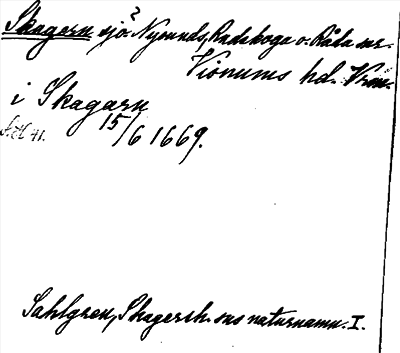 Skagern sjö? Nysunds, Rudskoga o. Råda snr.
Visnums hd. Vrml.
i Skagarn
15/6 1669.
Sahlgren, Skagersh. sns naturnamn. I.